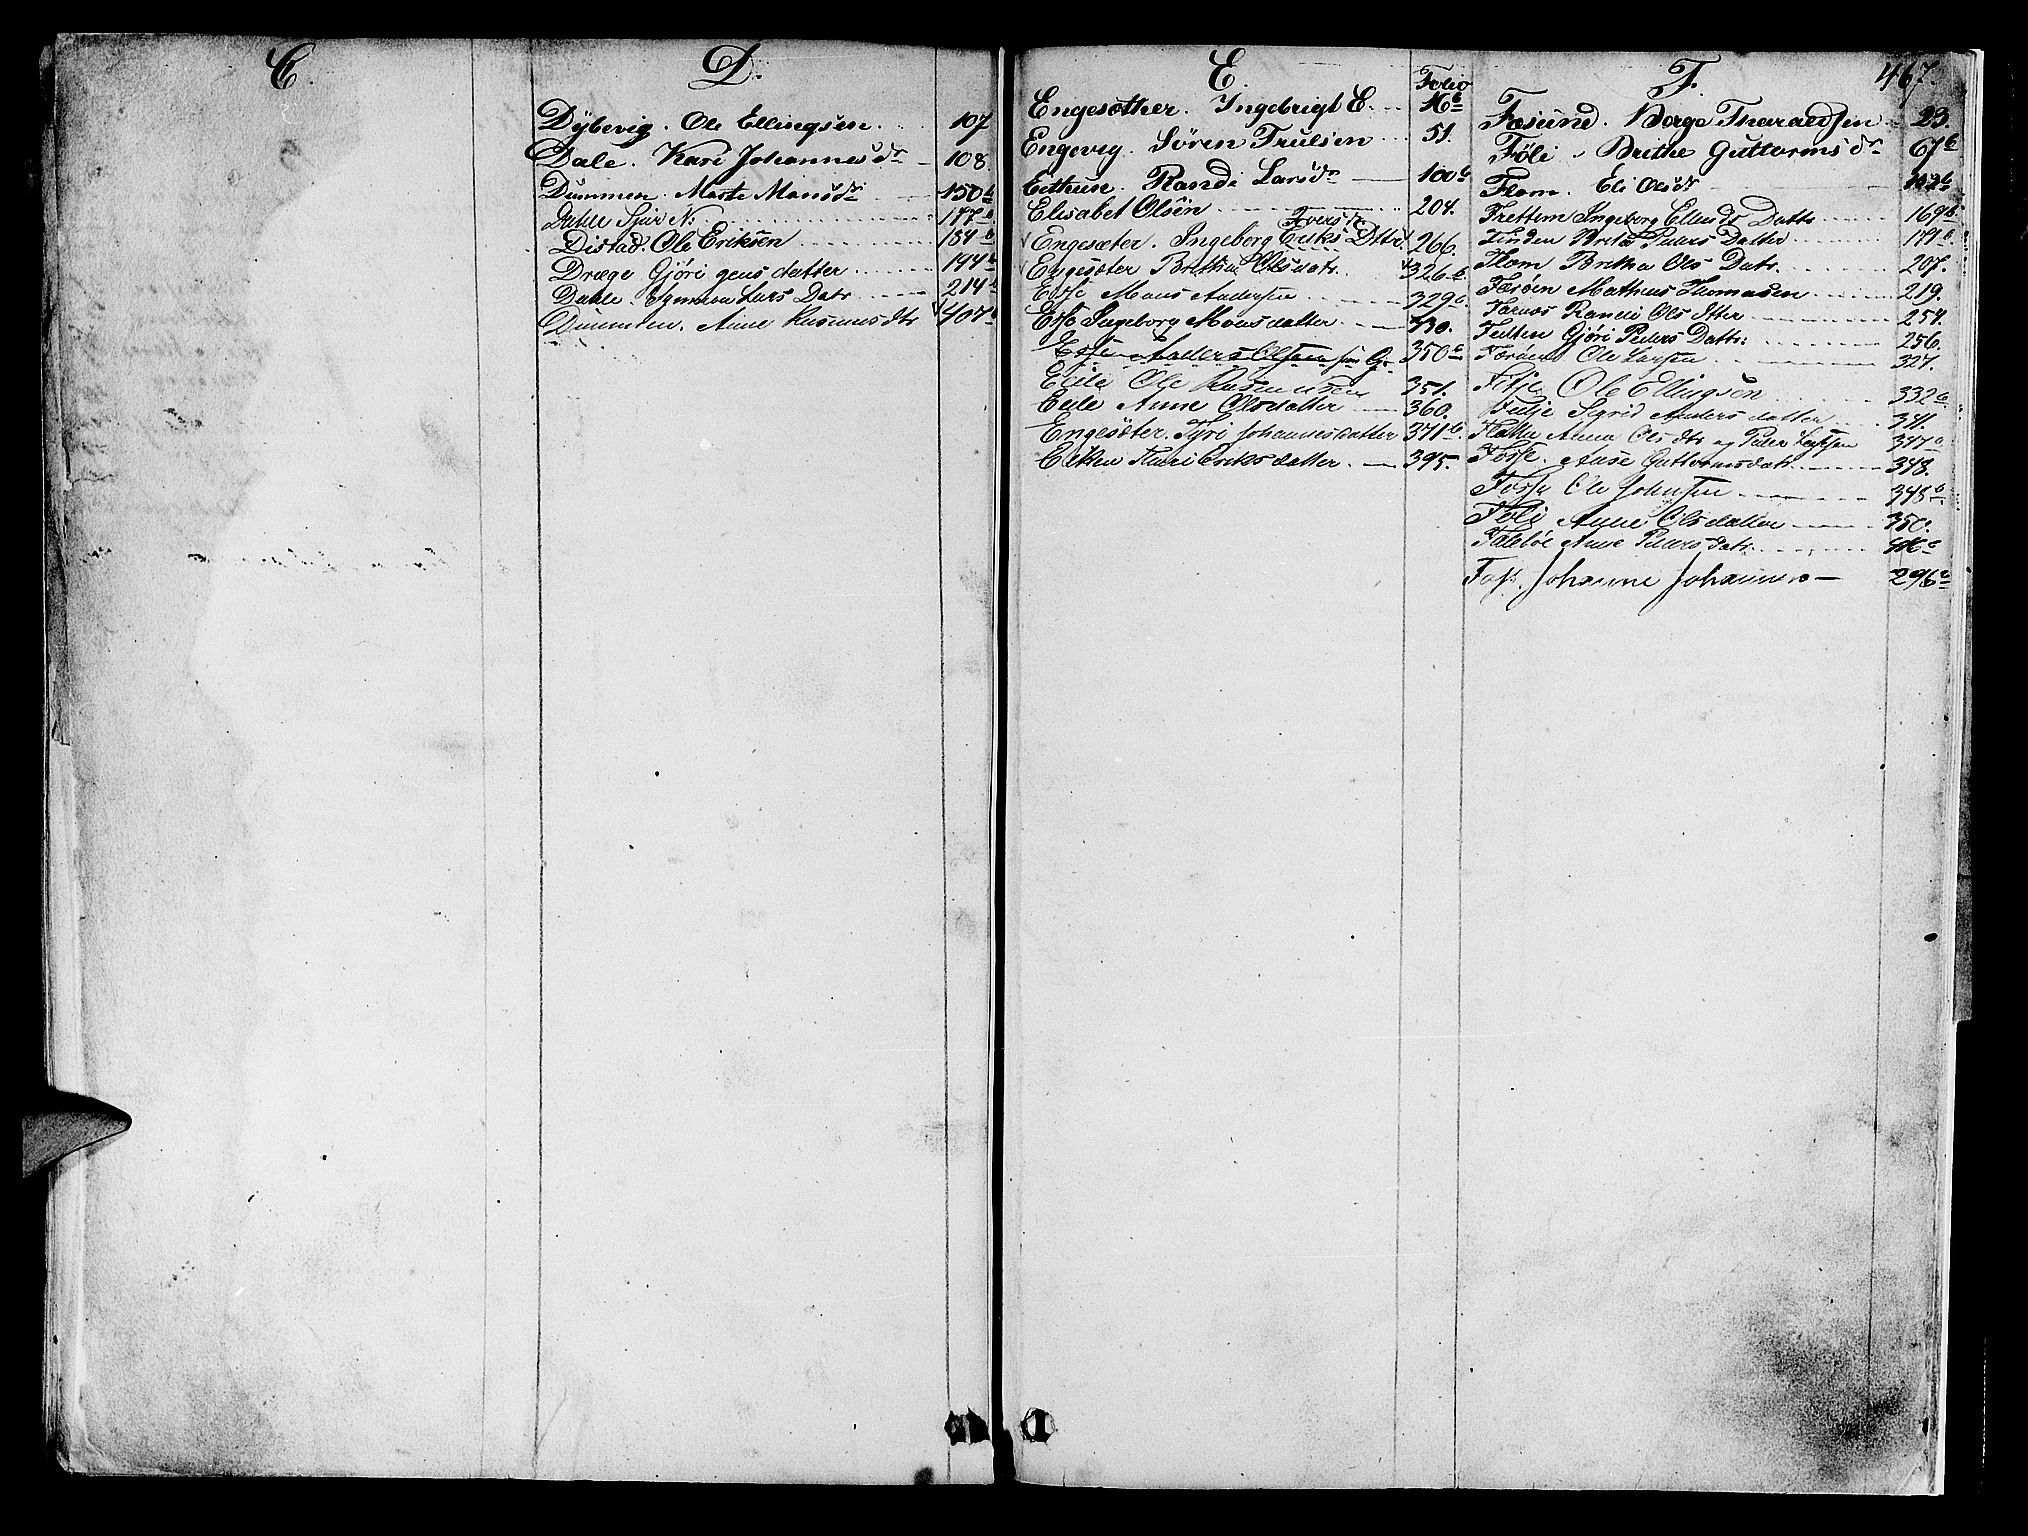 C.
D.
Dybevig. Ole Ellingsen. 107
Dale. Kari Johannesdr 108.
Dummen. Marte Monsdr 150b
Dahle Sjur N: 177b
Distad. Ole Eriksen 184b
Dræge Gjøri gens datter 194b
Dahle. Synneva Lars Datr 214b
Dummen. Anne Rasmusdtr 407b
E.
Folio
Engesæther. Ingebrigt E. 16b
Engevig. Søren Trulsen 51.
Eithun. Randi Larsdr 100b
Elisabet Olsen 204.
Iversdr
Engesæter. Ingeborg Eriks Dttr. 266.
Engesæter Brithe Olsdatr. 326b
Esse Mons Andersen 329b
Esse Ingeborg Monsdatter 330.
Esse Anders Olsen 350b
Eide Ole Rasmussen 351.
Eide Anne Olsdatter 360.
Engesæter. Tyri Johannesdatter 371b.
Eiken Thuri Eriksdatter. 395.
467.
F.
Fæsund. Borge Tharaldsen 23
Føli. Brithe Guttormsdr 67b
Flom. Eli Olsdr
Frettem Ingeborg Ellends Dattr 169b.
Finden Brita Peders Datter 171b.
Flom Britha Ols Datr. 207.
Færøen Matheus Thomasen 219.
Farnes Randi Ols dtter 254.
Fetten Gjøri Peders Dattr: 256.
Færøen Ole Larsen 327.
Fitje Ole Ellingson 332b
Feitje Sigrid Anders datter 341.
Flatten Anna Ols dtr og Peder 347b
Fosse. Anse Guttormsdatr. 348.
Fosse Ole Johnsen 348b
Føli Anne Olsdatter 350.
Faleböe Anne Peders datr.
Foss. Johanne Johannes 296b